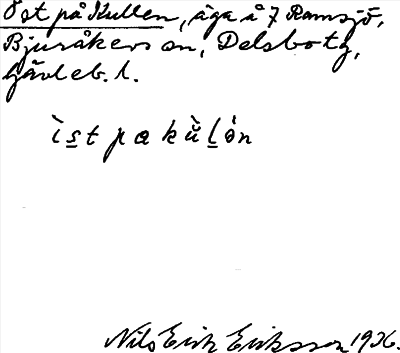 Öst på Kullen, äga å 7 Ramsjö,
Bjuråkers sn, Delsbo tg,
Gävleb. l.
ìs̲t pakùl̲ȯn
Nils Erik Eriksson 1936.